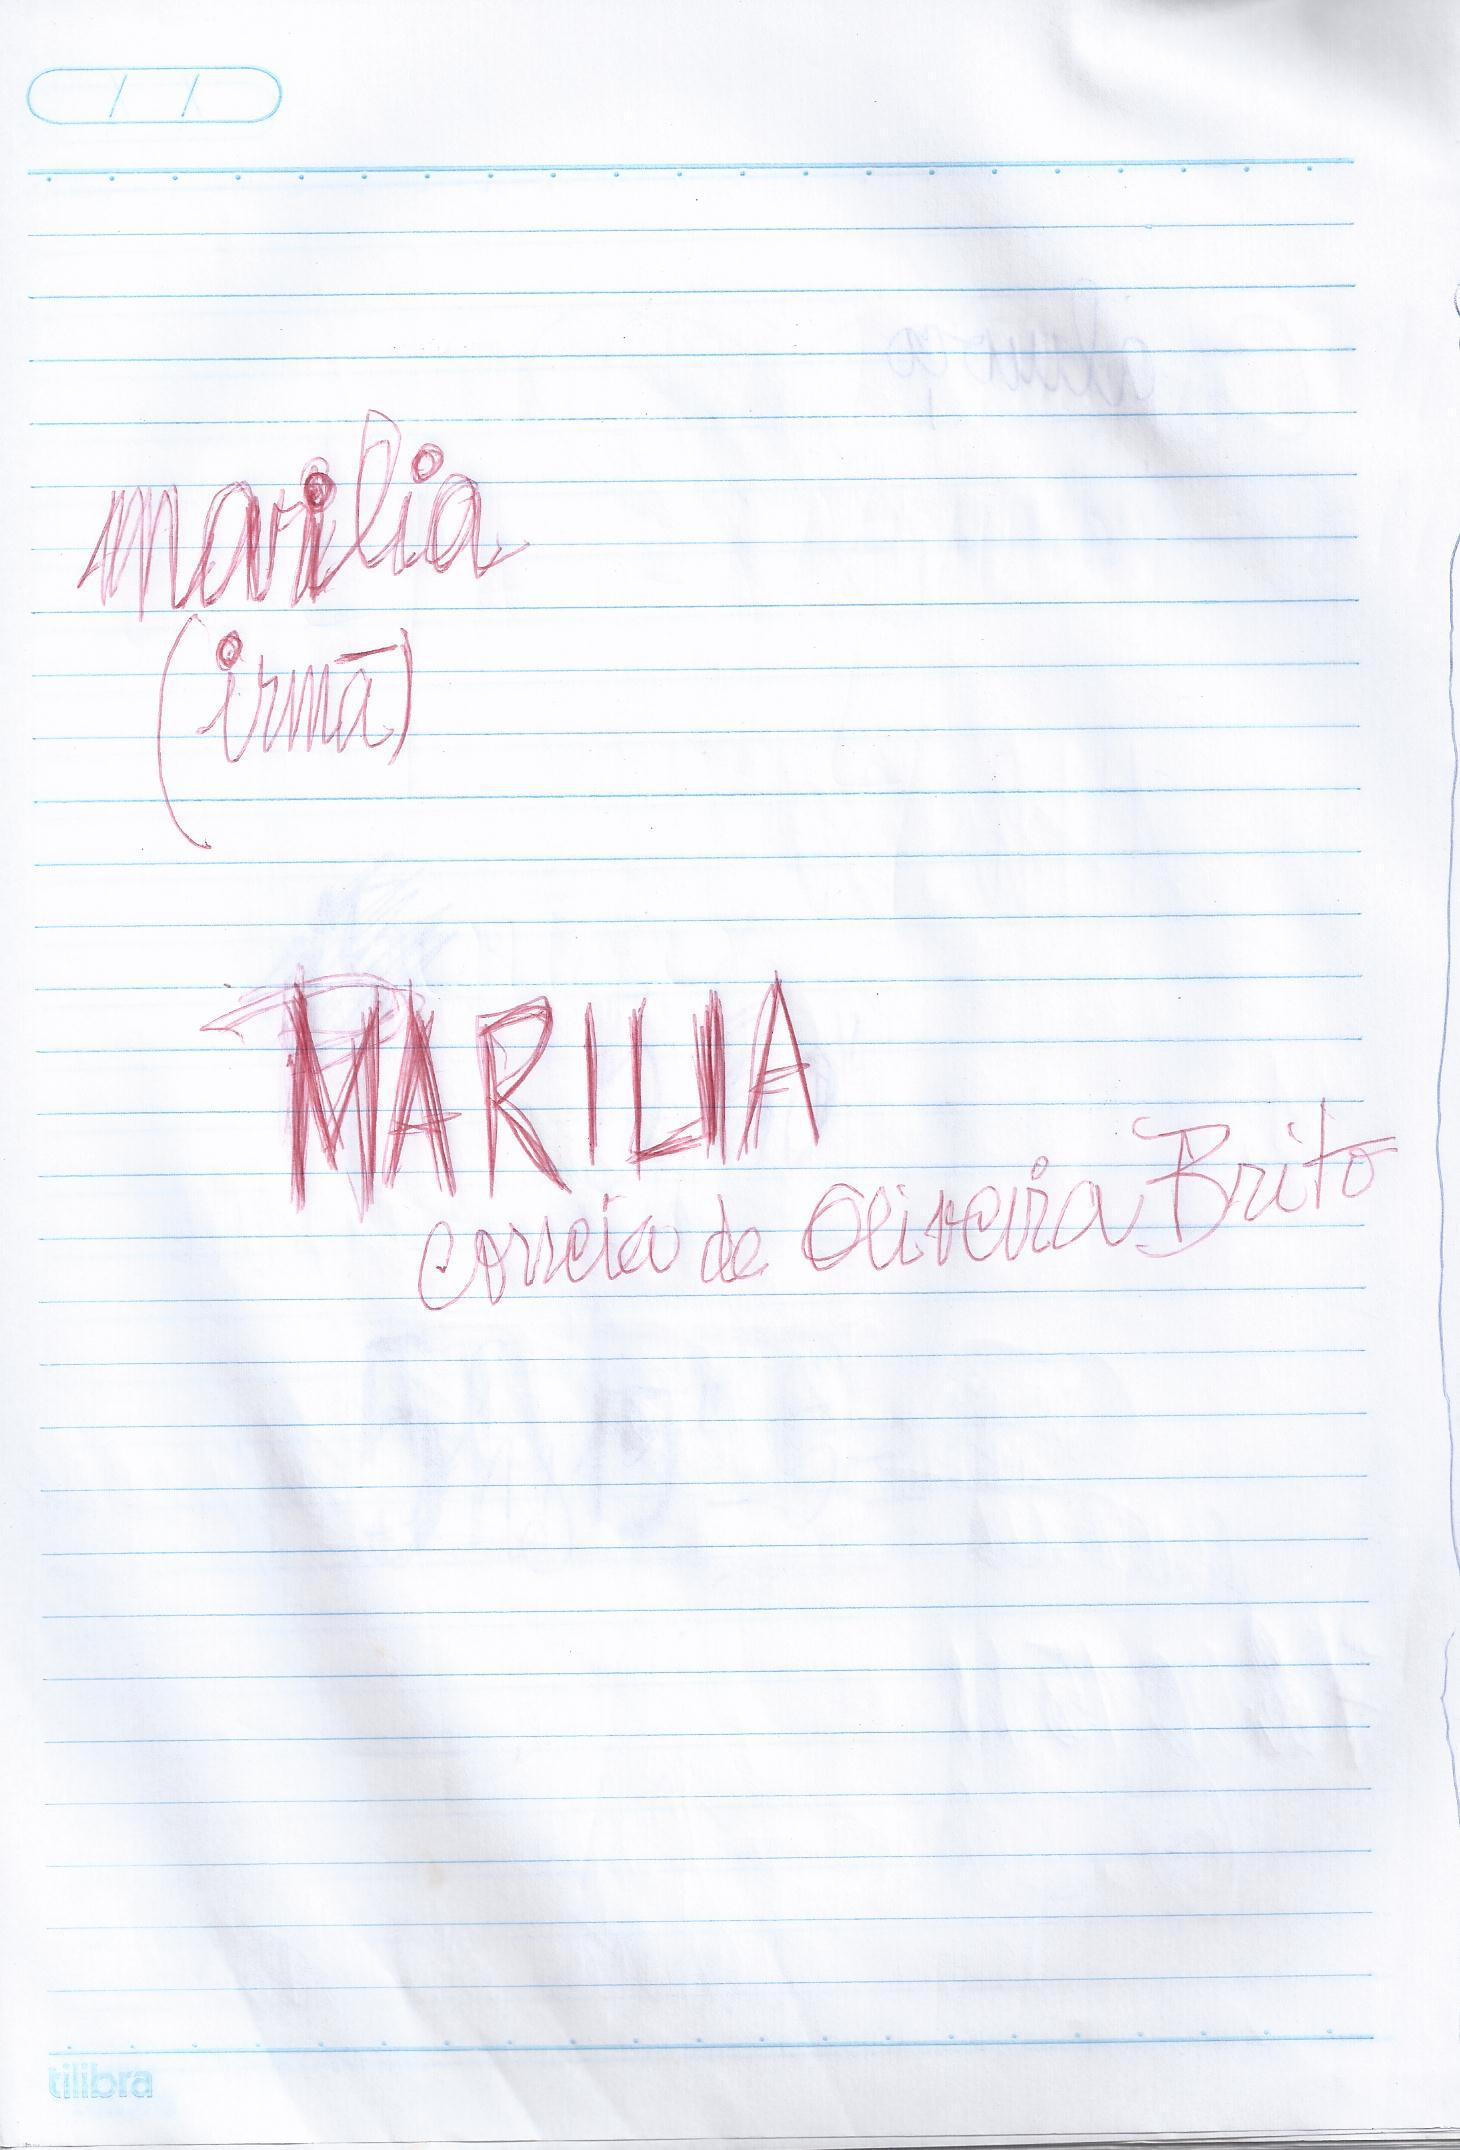 marilia
(irmã)
MARILIA
Correia de Oliveira Brito
tilibra